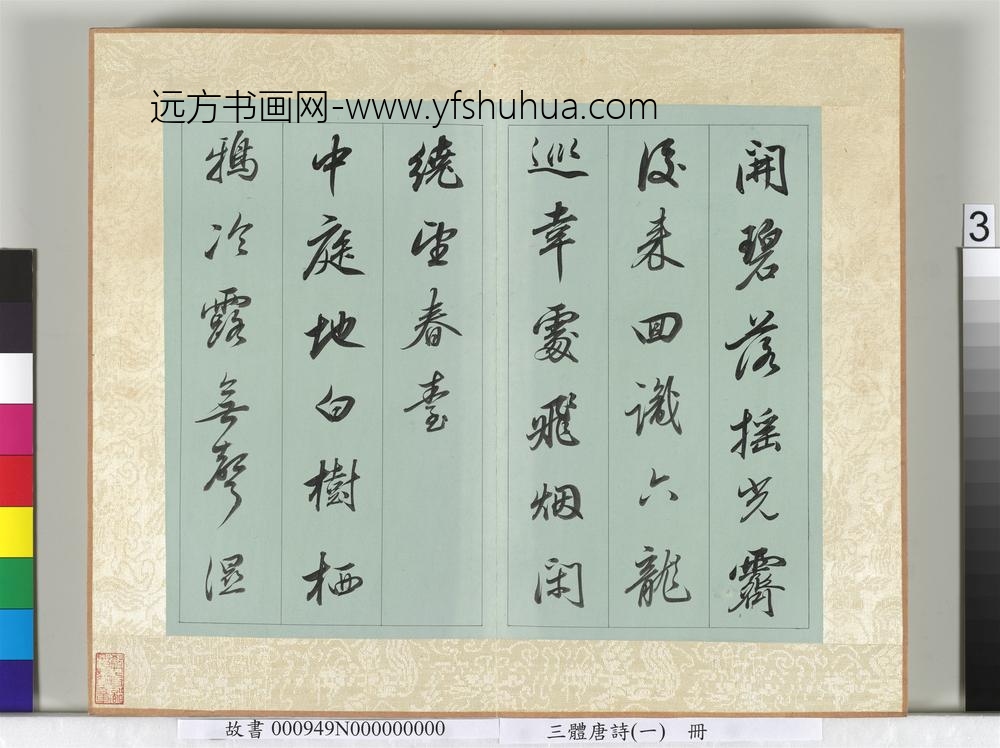 远方书画网-www.yfshuhua.com
開碧落搖光霽
後来回識六龍
巡幸處飛烟閑
繞望春臺
中庭地白樹栖
鴉冷露無聲濕
3
故書 000949N000000000
三體唐詩(一) 冊